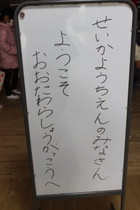 せいかようちえんのみなさん
ようこそ
おおたわらしょうがっこうへ